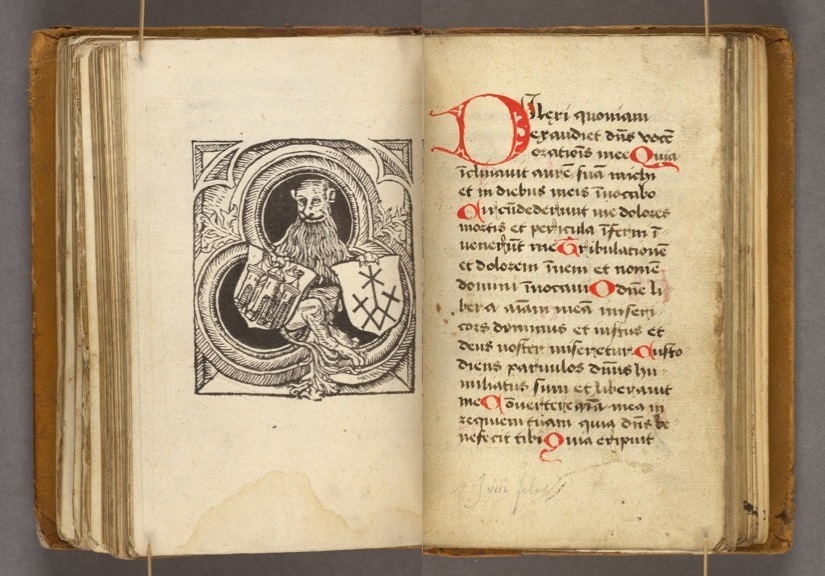 Dilexi quoniam
exaudiet dn̄s vocē
oratiōis mee Quia
īclinauit aurē suā michi
et in diebus meis īuocabo
Circūdederunt me dolores
mortis et pericula īferni ī
uenerūt me Tribulationē
et dolorem īueni et nomē
domini īuocaui O dn̄e li
bera aīam meā miseri
cors dominus et iustus et
deus noster miseretur Custo
diens paruulos dn̄us hu
miliatus sum et liberauit
me Conuertere aīa mea in
requiem tuam quia dn̄s be
nefecit tibi Quia eripuit